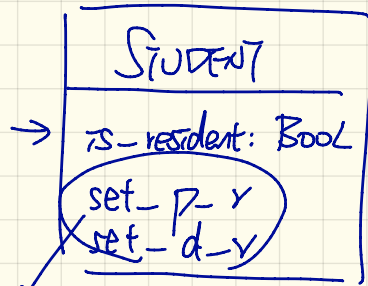 STUDENT
is_resident: BOOL
set_p_r
set_d_r